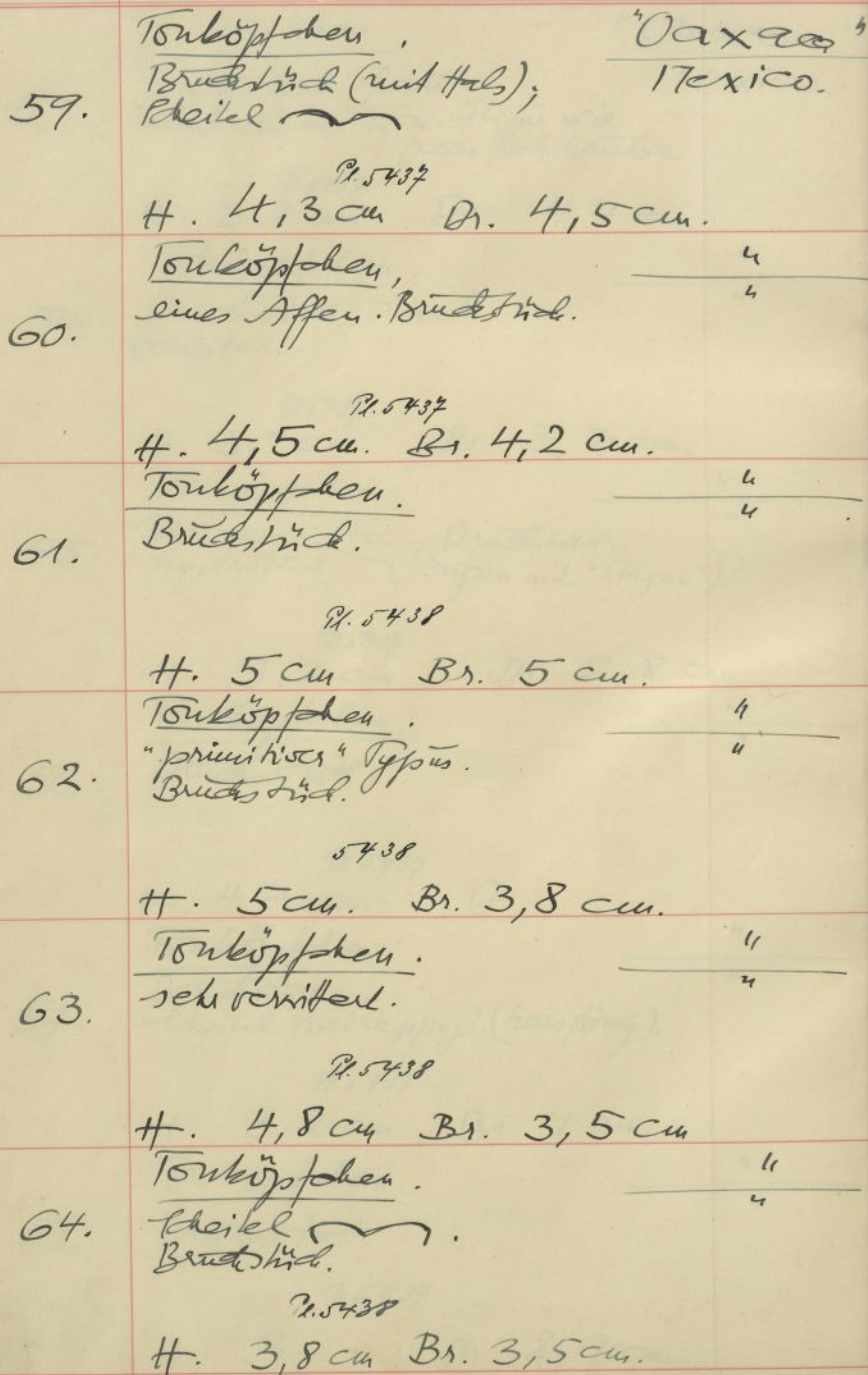 Tonköpfchen. "Oaxaca"
Bruchstück (mit Hals); Mexico.
59. Scheitel
Pl. 5437
H. 4,3 cm Br. 4,5 cm.
Tonköpfchen, "
eines Affen. Bruchstück. "
60.
Pl. 5437
H. 4,5 cm. Br. 4,2 cm.
Tonköpfchen. "
61. Bruchstück. "
Pl. 5438
H. 5 cm Br. 5 cm.
Tonköpfchen. "
"primitiver" Typus. "
62. Bruchstück.
5438
H. 5 cm. Br. 3,8 cm.
Tonköpfchen. "
63. sehr verwittert. "
Pl. 5438
H. 4,8 cm Br. 3,5 cm
Tonköpfchen. "
64. Scheitel . "
Bruchstück.
Pl. 5438
H. 3,8 cm Br. 3,5 cm.